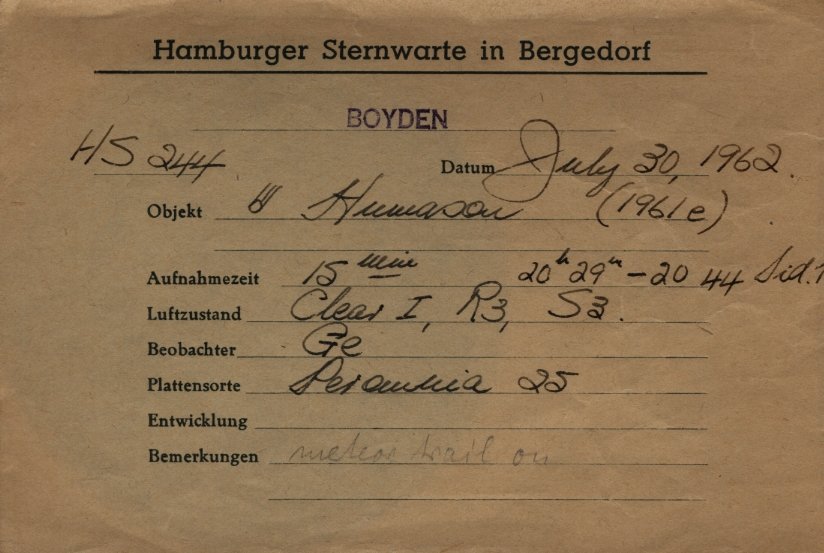 Hamburger Sternwarte in Bergedorf
BOYDEN
HS 244 Datum July 30, 1962.
Objekt Humason (1961e)
Aufnahmezeit 15 min 20h 29m - 20 44 Sid.
Luftzustand Clear I, R3, S3.
Beobachter Ge
Plattensorte Perutz 25
Entwicklung
Bemerkungen meteor trail on